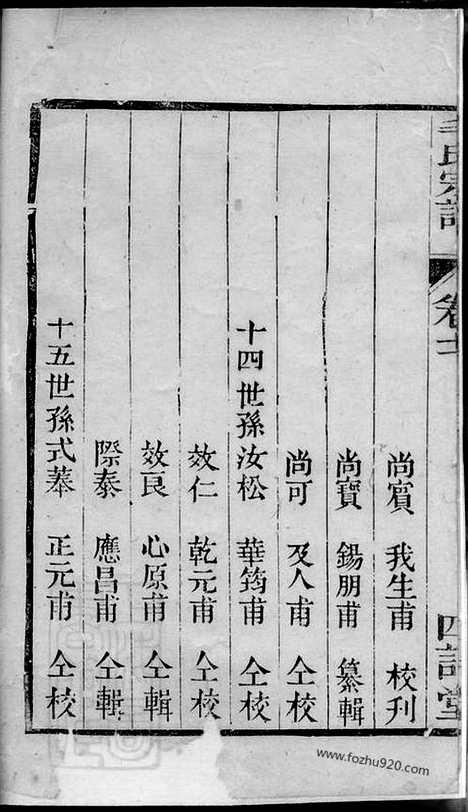 氏宗譜
卷十
四詩堂
尚賓　我生甫　校刋
尚寶　錫朋甫　纂輯
尚可　及人甫　仝校
十四世孫汝松　華筠甫　仝校
效仁　乾元甫　仝校
效良　心原甫　仝輯
際泰　應昌甫　仝輯
十五世孫式䔥　正元甫　仝校
www.fozhu920.com